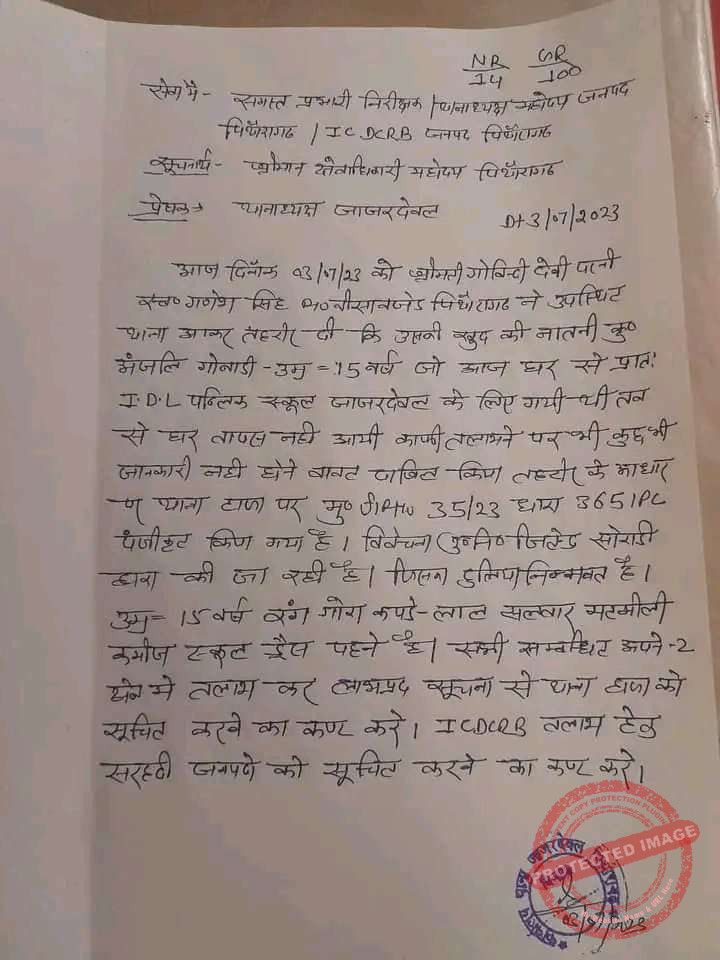 NR GR
14 100
सेवा में - समस्त प्रभारी निरीक्षक / थानाध्यक्ष महोदय जनपद
पिथौरागढ़ / I C DCRB जनपद पिथौरागढ़
सूचनार्थ - श्रीमान क्षेत्राधिकारी महोदय पिथौरागढ़
प्रेषक → थानाध्यक्ष जाजरदेवल Dt 3/07/2023
आज दिनाँक 03/07/23 को श्रीमती गोविन्दी देवी पत्नी
स्व० गणेश सिंह पिथौरागढ़ ने उपस्थित
थाना आकर तहरीर दी कि उसकी खुद की नातनी कु०
अंजलि गोबाडी - उम्र = 15 वर्ष जो आज घर से प्रातः
I.D.L पब्लिक स्कूल जाजरदेवल के लिए गयी थी तब
से घर वापस नही आयी काफी तलाशने पर भी कुछ भी
जानकारी नही होने बावत दाखिल किया तहरीर के आधार
पर थाना हाजा पर मु० 35/23 धारा 365 IPC
पंजीकृत किया गया है। विवेचना उ०नि० जितेंद्र सोराडी
द्वारा की जा रही है। जिसका हुलिया निम्नवत है।
उम्र = 15 वर्ष रंग गोरा कपडे - लाल सलवार मटमीली
कमीज स्कूल ड्रैस पहने है। सभी सम्बन्धित अपने - 2
क्षेत्र मे तलाश कर लाभप्रद सूचना से थाना हाजा को
सूचित करने का कष्ट करे। I C DCRB तलाश हेतु
सरहदी जनपदो को सूचित करने का कष्ट करे।
थाना जाजरदेवल पिथौरागढ़
PROTECTED IMAGE
CONTENT COPY PROTECTION PLUGIN